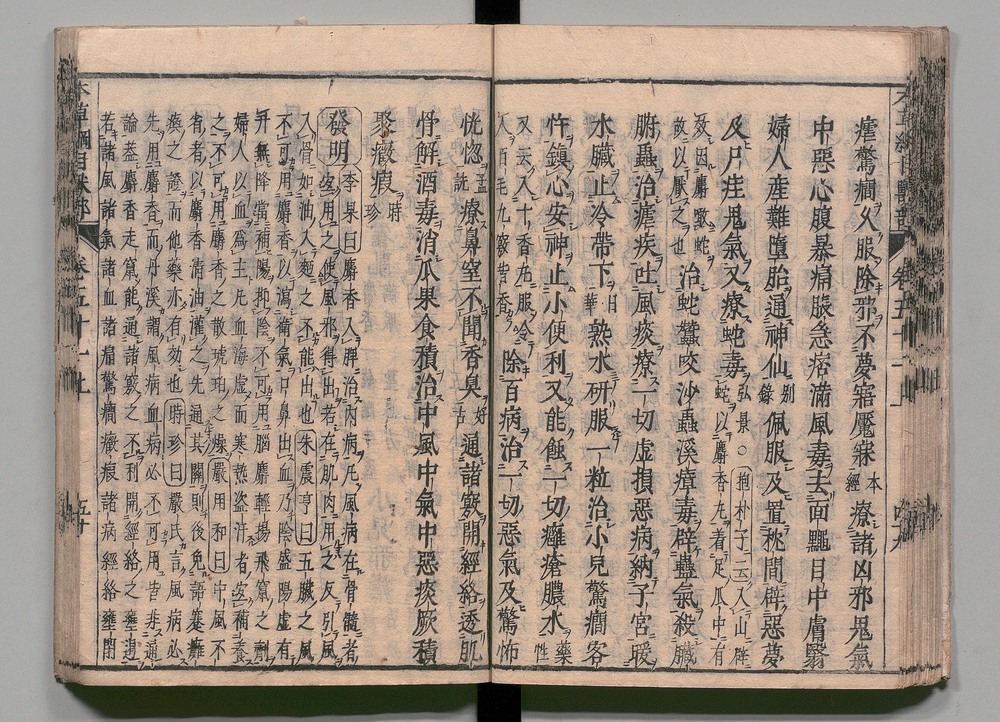 瘧驚癇久服除邪不夢寤魘寐本經療諸凶邪鬼氣
中惡心腹暴痛脹急痞滿風毒去面䵳目中膚翳
婦人產難墮胎通神仙別錄佩服及置枕間辟惡夢
及尸疰鬼氣又療蛇毒弘景○抱朴子云入山辟
蛇以麝香丸着足爪中有
效因麝噉蛇
故以厭之也治蛇蠶咬沙蝨溪瘴毒辟蠱氣殺臟
腑蟲治瘧疾吐風痰療一切虛損惡病納子宮暖
水臟止冷帶下日華熟水研服一粒治小兒驚癇客
忤鎮心安神止小便利又能蝕一切癰瘡膿水藥性
又云入十香丸服令
人百毛九竅皆香除百病治一切惡氣及驚怖
恍惚孟詵療鼻窒不聞香臭好古通諸竅開經絡透肌
骨解酒毒消瓜果食積治中風中氣中惡痰厥積
聚癥瘕時珍
發明李杲曰麝香入脾治內病凡風病在骨髓者
宜用之使風邪得出若在肌肉用之反引風
入骨如油入麪之不能出也朱震亨曰五臟之風
不可用麝香以瀉衛氣口鼻出血乃陰盛陽虛有
升無降當補陽抑陰不可用腦麝輕揚飛竄之劑
婦人以血為主凡血海虛而寒熱盜汗者宜補養
之不可用麝香之散琥珀之燥嚴用和曰中風不
省者以麝香清油灌之先通其關則後免語蹇癱
瘓之證而他藥亦有效也時珍曰嚴氏言風病必
先用麝香而丹溪謂風病血病必不可用皆非通
論葢麝香走竄能通諸竅之不利開經絡之壅遏
若諸風諸氣諸血諸痛驚癇癥瘕諸病經絡壅閉